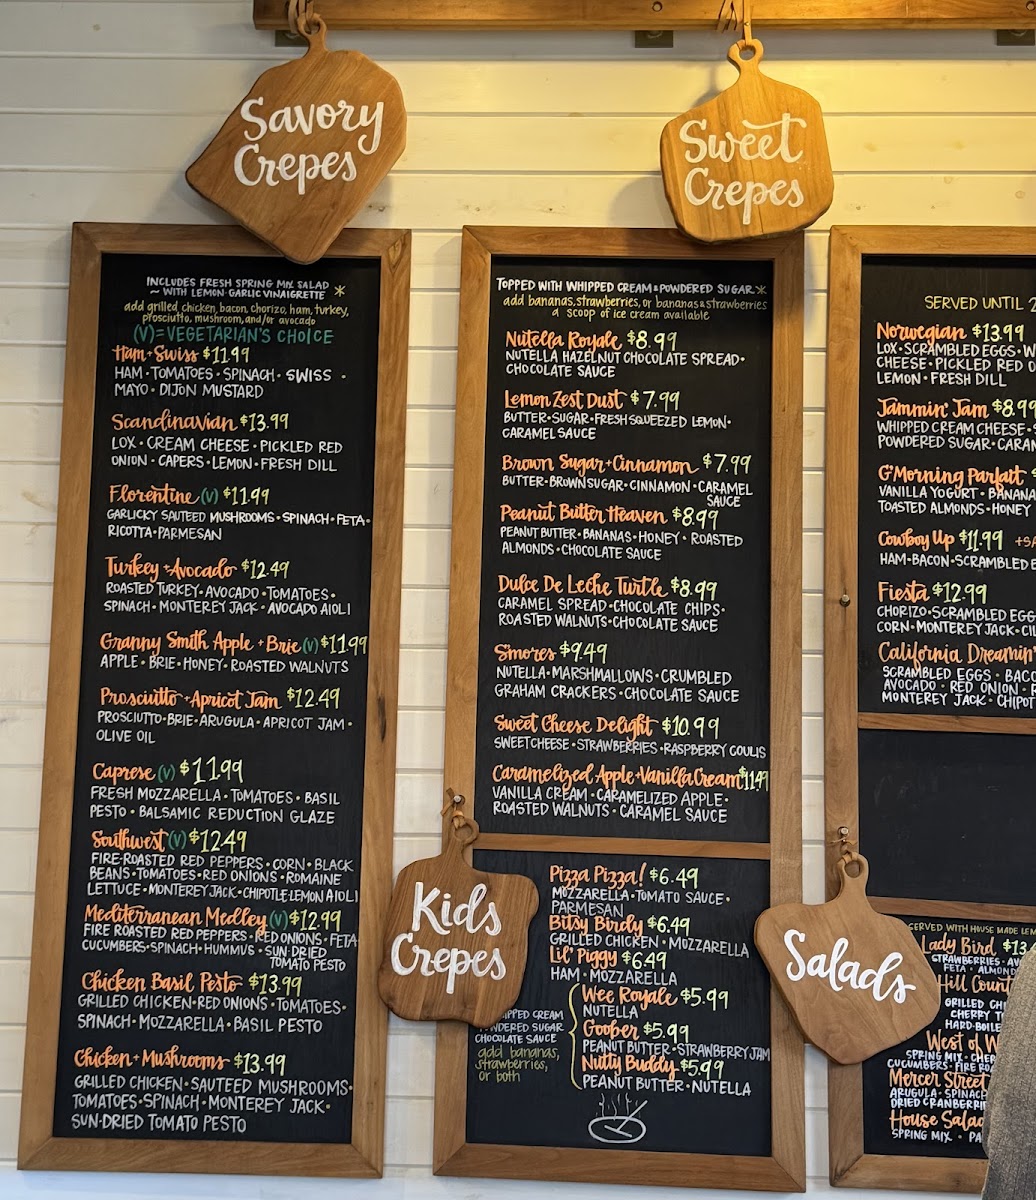 Savory
Crepes
INCLUDES FRESH SPRING MIX SALAD
~ WITH LEMON-GARLIC VINAIGRETTE *
add grilled chicken, bacon, chorizo, ham, turkey,
prosciutto, mushroom, and/or avocado
(V)=VEGETARIAN'S CHOICE
Ham+Swiss $11.99
HAM • TOMATOES • SPINACH • SWISS •
MAYO • DIJON MUSTARD
Scandinavian $13.99
LOX • CREAM CHEESE • PICKLED RED
ONION • CAPERS • LEMON • FRESH DILL
Florentine (V) $11.99
GARLICKY SAUTEED MUSHROOMS • SPINACH • FETA •
RICOTTA • PARMESAN
Turkey+Avocado $12.49
ROASTED TURKEY • AVOCADO • TOMATOES •
SPINACH • MONTEREY JACK • AVOCADO AIOLI
Granny Smith Apple + Brie (V) $11.99
APPLE • BRIE • HONEY • ROASTED WALNUTS
Prosciutto + Apricot Jam $12.49
PROSCIUTTO • BRIE • ARUGULA • APRICOT JAM •
OLIVE OIL
Caprese (V) $11.99
FRESH MOZZARELLA • TOMATOES • BASIL
PESTO • BALSAMIC REDUCTION GLAZE
Southwest (V) $12.49
FIRE-ROASTED RED PEPPERS • CORN • BLACK
BEANS • TOMATOES • RED ONIONS • ROMAINE
LETTUCE • MONTEREY JACK • CHIPOTLE-LEMON AIOLI
Mediterranean Medley (V) $12.99
FIRE ROASTED RED PEPPERS • RED ONIONS • FETA
CUCUMBERS • SPINACH • HUMMUS • SUN-DRIED
TOMATO PESTO
Chicken Basil Pesto $13.99
GRILLED CHICKEN • RED ONIONS • TOMATOES •
SPINACH • MOZZARELLA • BASIL PESTO
Chicken + Mushrooms $13.99
GRILLED CHICKEN • SAUTEED MUSHROOMS •
TOMATOES • SPINACH • MONTEREY JACK •
SUN-DRIED TOMATO PESTO
Sweet
Crepes
TOPPED WITH WHIPPED CREAM & POWDERED SUGAR *
add bananas, strawberries, or bananas & strawberries
a scoop of ice cream available
Nutella Royale $8.99
NUTELLA HAZELNUT CHOCOLATE SPREAD •
CHOCOLATE SAUCE
Lemon Zest Dust $7.99
BUTTER • SUGAR • FRESH SQUEEZED LEMON •
CARAMEL SAUCE
Brown Sugar + Cinnamon $7.99
BUTTER • BROWN SUGAR • CINNAMON • CARAMEL
SAUCE
Peanut Butter Heaven $8.99
PEANUT BUTTER • BANANAS • HONEY • ROASTED
ALMONDS • CHOCOLATE SAUCE
Dulce De Leche Turtle $8.99
CARAMEL SPREAD • CHOCOLATE CHIPS •
ROASTED WALNUTS • CHOCOLATE SAUCE
S'mores $9.49
NUTELLA • MARSHMALLOWS • CRUMBLED
GRAHAM CRACKERS • CHOCOLATE SAUCE
Sweet Cheese Delight $10.99
SWEET CHEESE • STRAWBERRIES • RASPBERRY COULIS
Caramelized Apple + Vanilla Cream $11.49
VANILLA CREAM • CARAMELIZED APPLE •
ROASTED WALNUTS • CARAMEL SAUCE
Kids
Crepes
Pizza Pizza! $6.49
MOZZARELLA • TOMATO SAUCE •
PARMESAN
Bitsy Birdy $6.49
GRILLED CHICKEN • MOZZARELLA
Lil' Piggy $6.49
HAM • MOZZARELLA
Wee Royale $5.99
NUTELLA
Goober $5.99
PEANUT BUTTER • STRAWBERRY JAM
Nutty Buddy $5.99
PEANUT BUTTER • NUTELLA
CREAM
SUGAR
CHOCOLATE SAUCE
add bananas,
strawberries,
or both
SERVED UNTIL
Norwegian $13.99
LOX • SCRAMBLED EGGS •
CHEESE • PICKLED RED
LEMON • FRESH DILL
Jammin' Jam $8.99
WHIPPED CREAM CHEESE •
POWDERED SUGAR •
G'Morning Parfait
VANILLA YOGURT •
TOASTED ALMONDS • HONEY
Cowboy Up $11.99
HAM • BACON • SCRAMBLED
Fiesta $12.99
CHORIZO • SCRAMBLED EGG
CORN • MONTEREY JACK •
California Dreamin'
SCRAMBLED EGGS •
AVOCADO • RED ONION •
MONTEREY JACK •
Salads
SERVED WITH HOUSE MADE
Lady Bird
STRAWBERRIES •
FETA •
Hill
GRILLED
CHERRY
HARD-BOILE
West of
SPRING MIX •
CUCUMBERS •
Mercer Street
ARUGULA •
DRIED
House Salad
SPRING MIX •